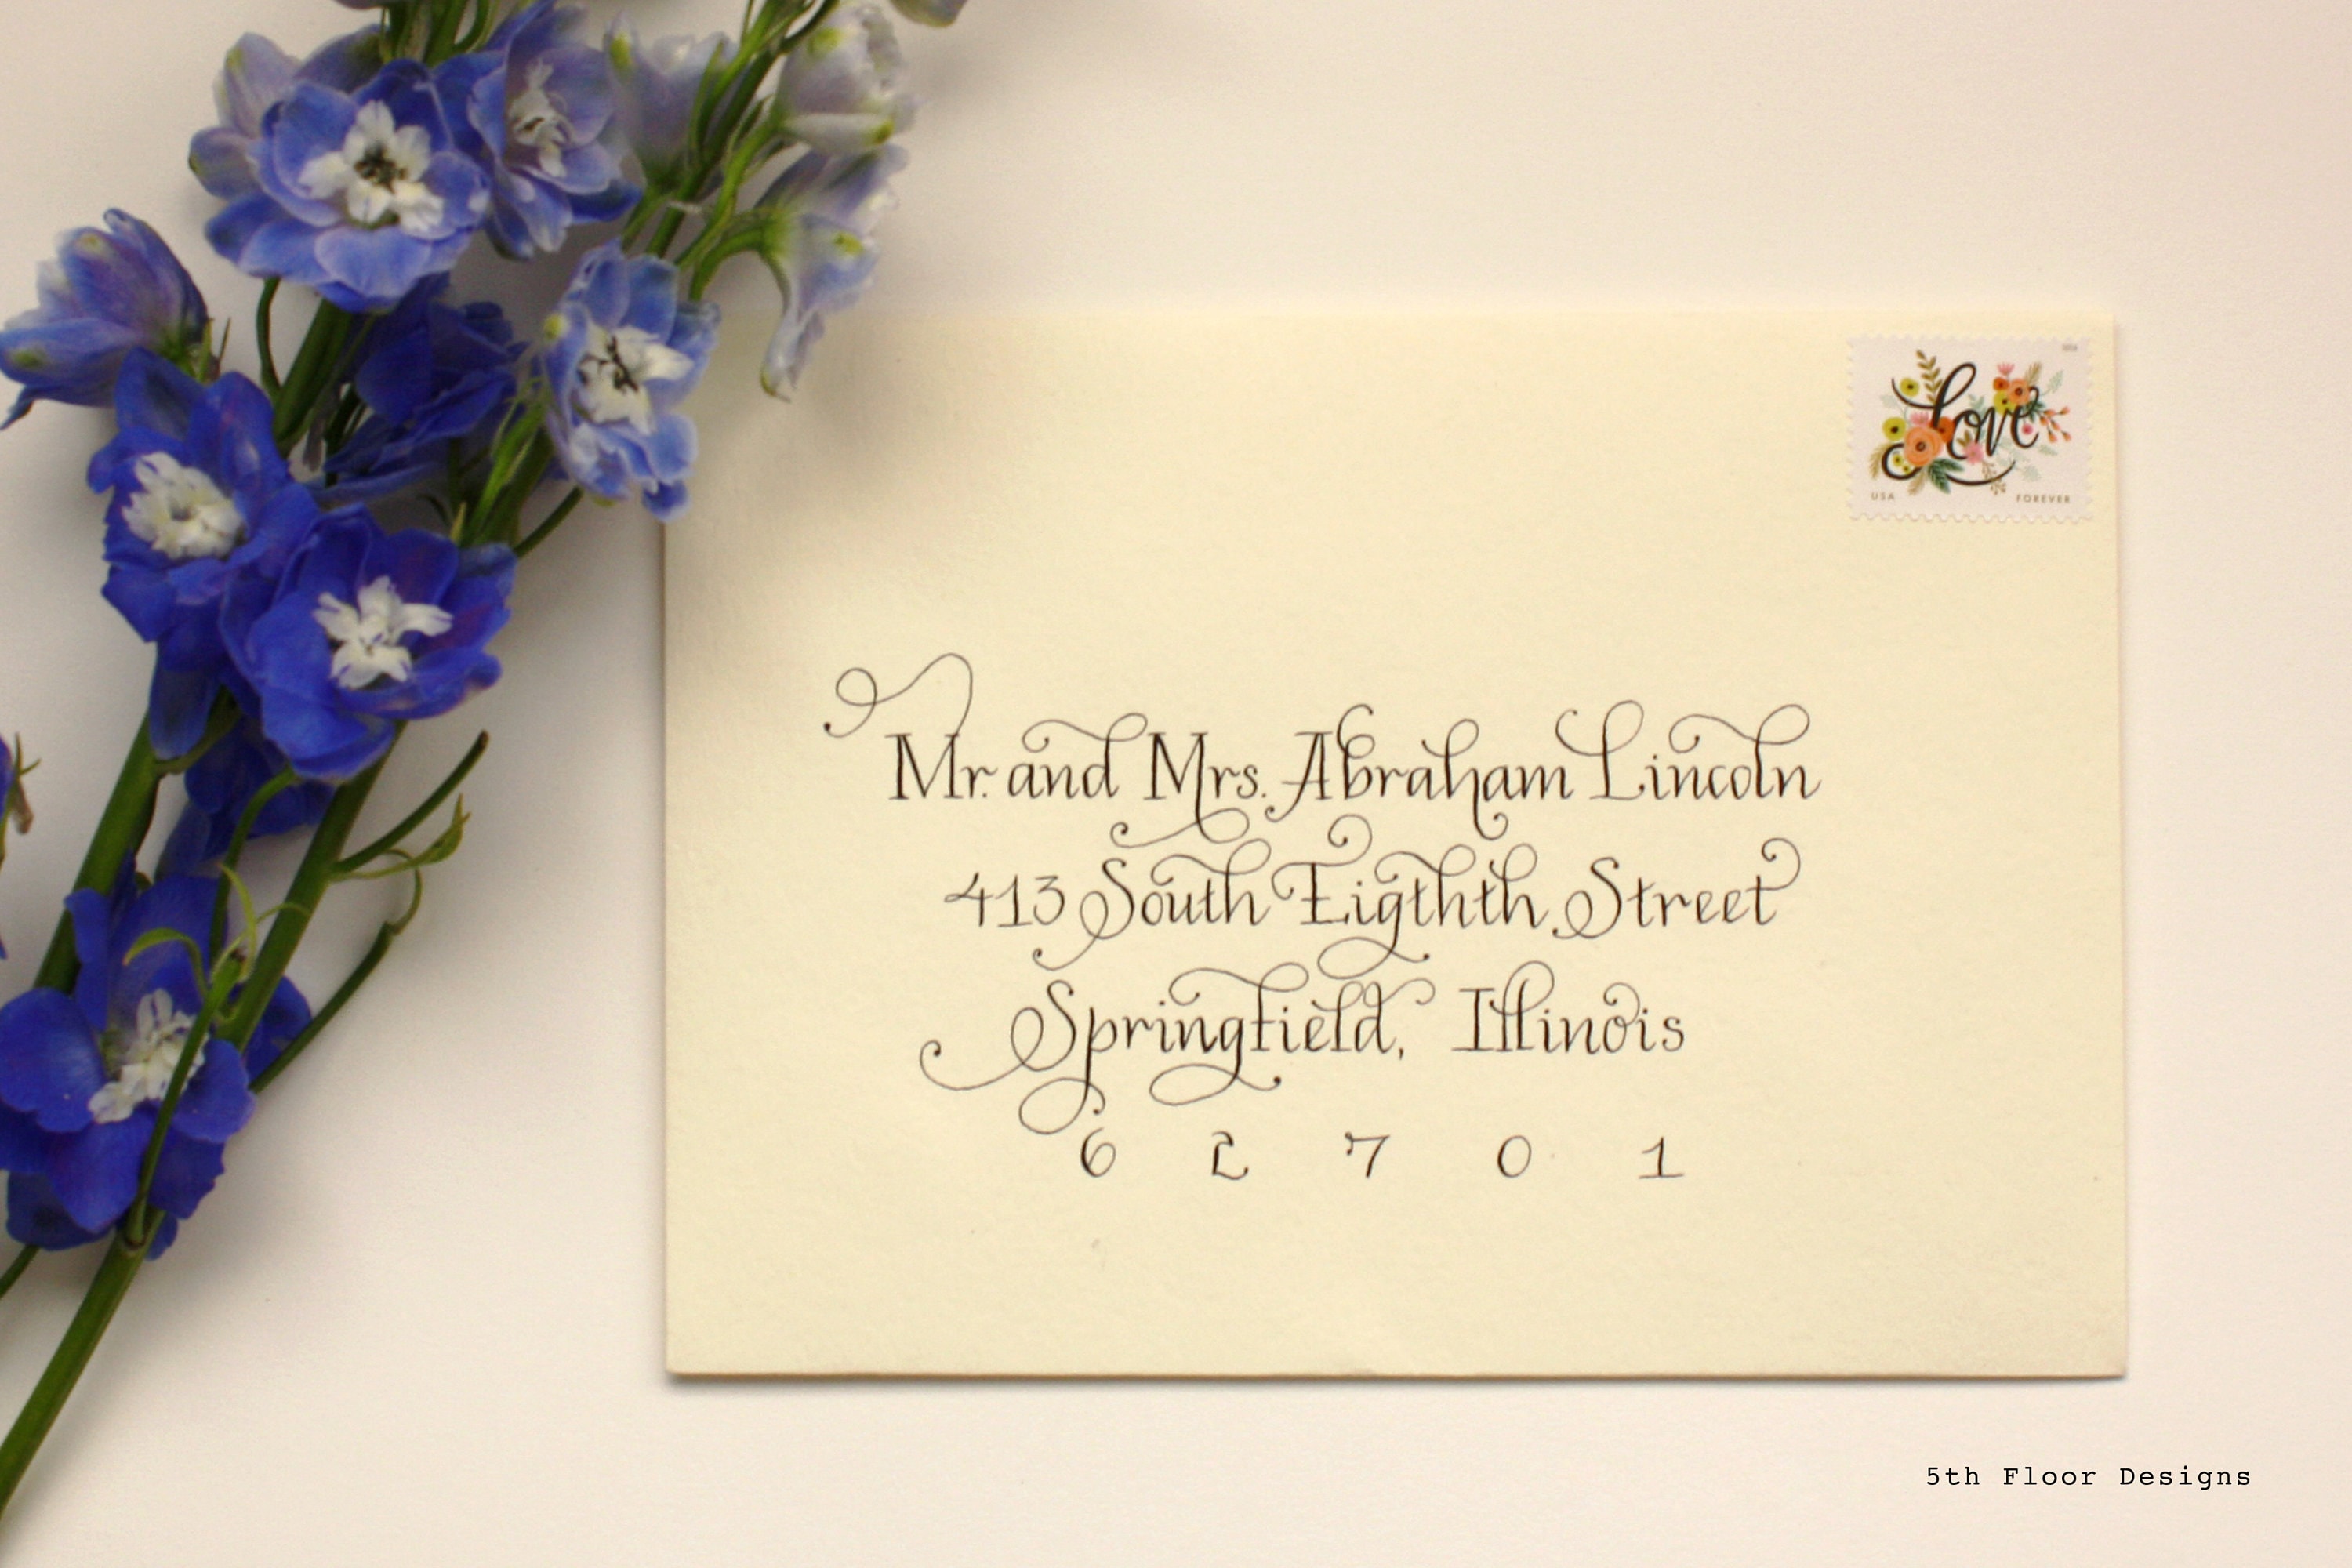 Love
USA FOREVER
Mr. and Mrs. Abraham Lincoln
413 South Eigthth Street
Springfield, Illinois
6 2 7 0 1
5th Floor Designs